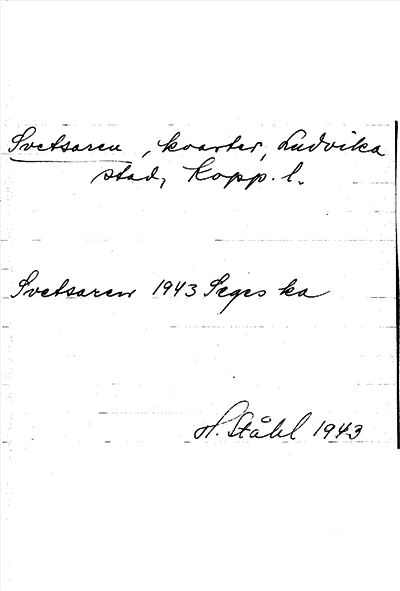 Svetsaren, kvarter, Ludvika
stad, Kopp. l.
Svetsaren 1943 Seges ka
H. Ståhl 1943